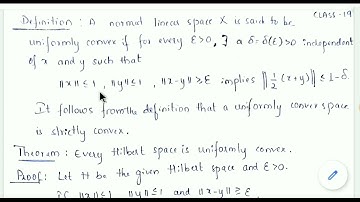 CLASS-19
Definition: A normal linear space X is said to be
uniformly convex if for every ε>0, ∃ a δ=δ(ε)>0 independent
of x and y such that
||x||≤1, ||y||≤1, ||x-y||≥ε implies ||1/2 (x+y)||≤1-δ.
It follows from the definition that a uniformly convex space
is strictly convex.
Theorem: Every Hilbert space is uniformly convex.
Proof: Let H be the given Hilbert space and ε>0.
If ||x||≤1, ||y||≤1 and ||x-y||≥ε.